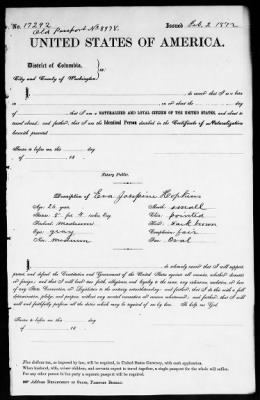 No. 17292
Old Passport No 8978.
Issued Feb. 2 1872
UNITED STATES OF AMERICA.
District of Columbia,
City and County of Washington
I, do swear that I was born
in on or about the day
of that I am a NATURALIZED AND LOYAL CITIZEN OF THE UNITED STATES, and about to
travel abroad; and further, that I am the Identical Person described in the Certificate of Naturalization
herewith presented
Sworn to before me this day
of 18
Notary Public.
Description of Eva Josepine Hopkins
Age: 26 year
Mouth: small
Stature: 5 ft 4 inches Eng
Chin: pointed
Forehead: medium
Hair: dark brown
Eyes: gray
Complexion: fair
Nose: medium
Face: oval
I, do solemnly swear that I will support,
protect, and defend the Constitution and Government of the United States against all enemies, whether domestic
or foreign; and that I will bear true faith, allegiance, and loyalty to the same, any ordinance, resolution, or law
of any State, Convention, or Legislature to the contrary notwithstanding; and further, that I do this with a full
determination, pledge, and purpose, without any mental reservation or evasion whatsoever; and further, that I will
well and faithfully perform all the duties which may be required of me by law. So help me God.
Sworn to before me this day
of 18
Five dollars tax, as imposed by law, will be required, in United States Currency, with each application.
When husband, wife, minor children, and servants expect to travel together, a single passport for the whole will suffice.
For any other person in the party a separate passport will be required.
Address DEPARTMENT OF STATE, PASSPORT BUREAU.